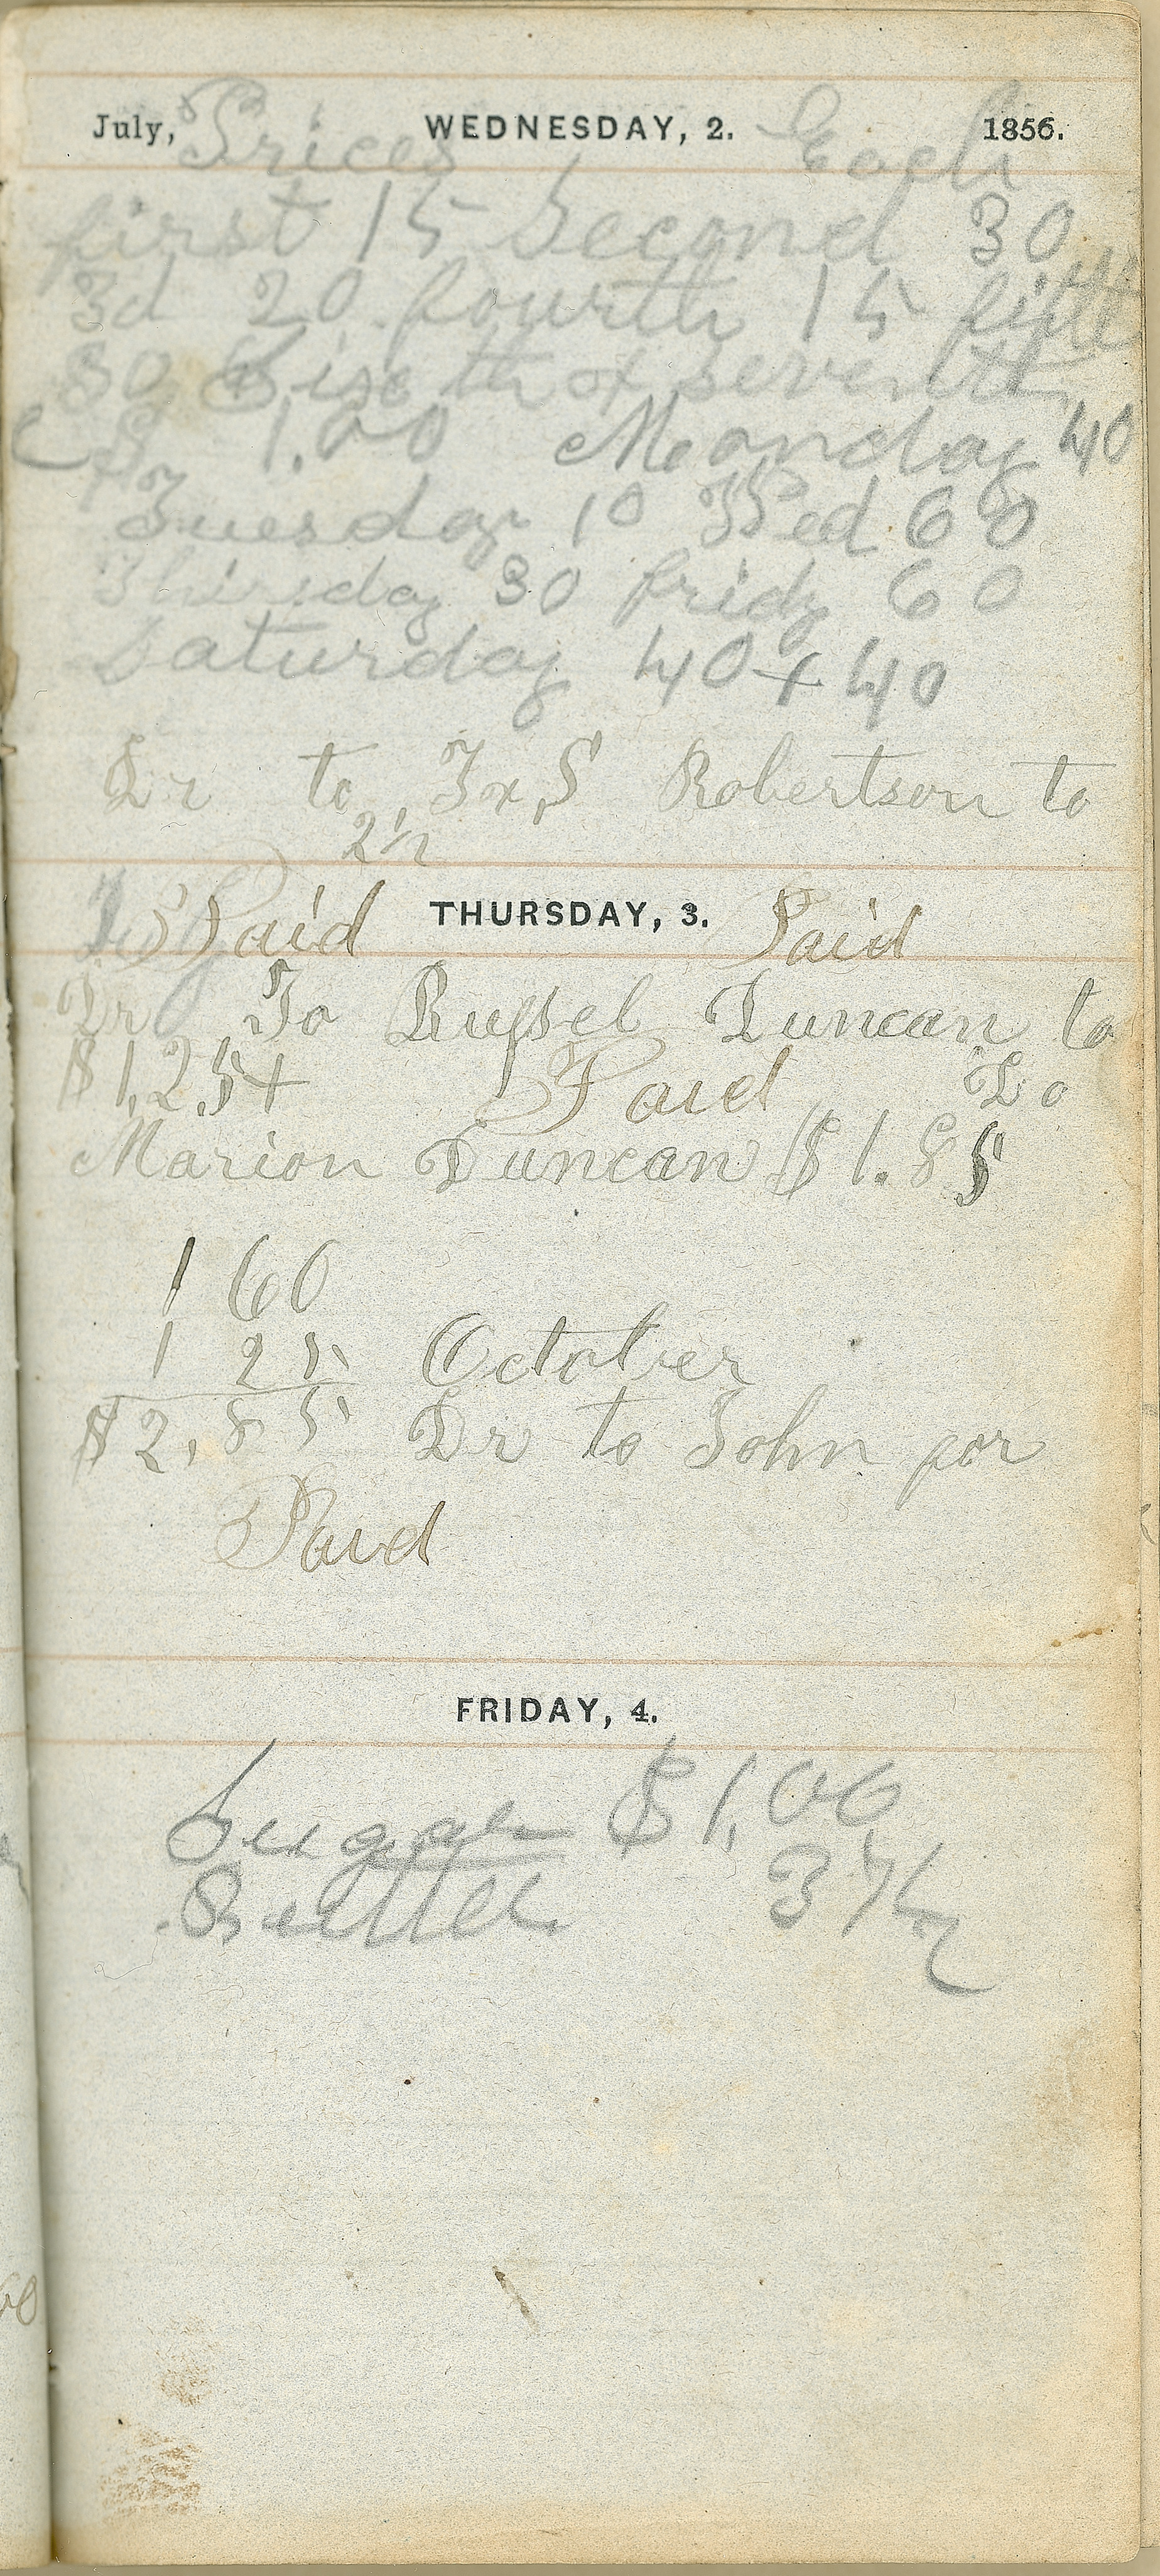 July, WEDNESDAY, 2. 1856.
Prices Each
first 15 Second 30
3d 20 fourth 15 fifth
30 Sixeth & seventh
$ 1.00 Moanday 40
Tuesday 10 Wed 60
Thirsday 30 fridy 60
Saturday 40 + 40
Dr to J x S Robertson to
2 1/2
THURSDAY, 3.
Paid Paid
Dr To Russel Duncan to
$1,25+ Paid Do
Marion Duncan $1.85
1 60
1 25 October
$2,85 Dr to John por
Paid
FRIDAY, 4.
Sugar $1,00
Butter 37 1/2